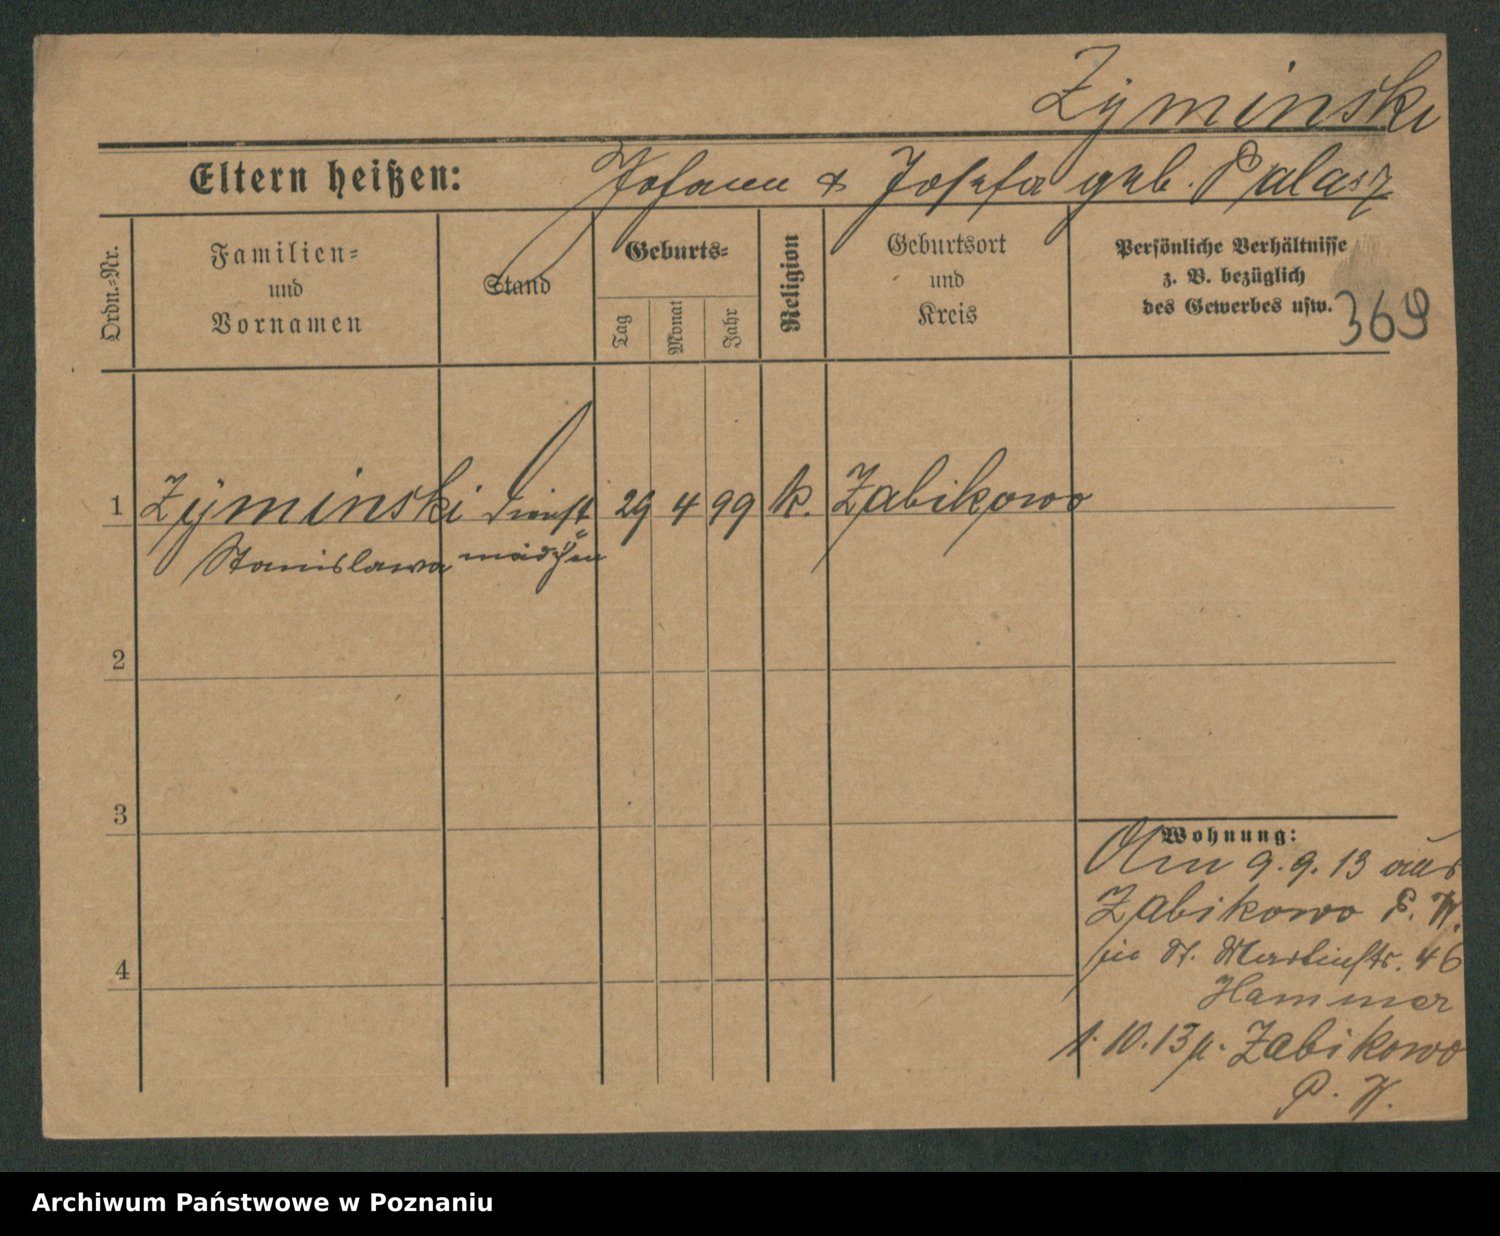 Zyminski
Eltern heißen: Johann & Josefa geb. Palasz
Ordn.-Nr.
Familien-
und
Vornamen
Stand
Geburts-
Tag
Monat
Jahr
Religion
Geburtsort
und
Kreis
Persönliche Verhältnisse
z. B. bezüglich
des Gewerbes usw.
369
1 Zyminski Dienst 29 4 99 k. Zabikowo
Stanislawa mädchen
2
3
4
Wohnung:
Am 9.9.13 aus
Zabikowo P. W.
in St. Martinstr. 46
Hammer
1.10.13 p. Zabikowo
P. W.
Archiwum Państwowe w Poznaniu